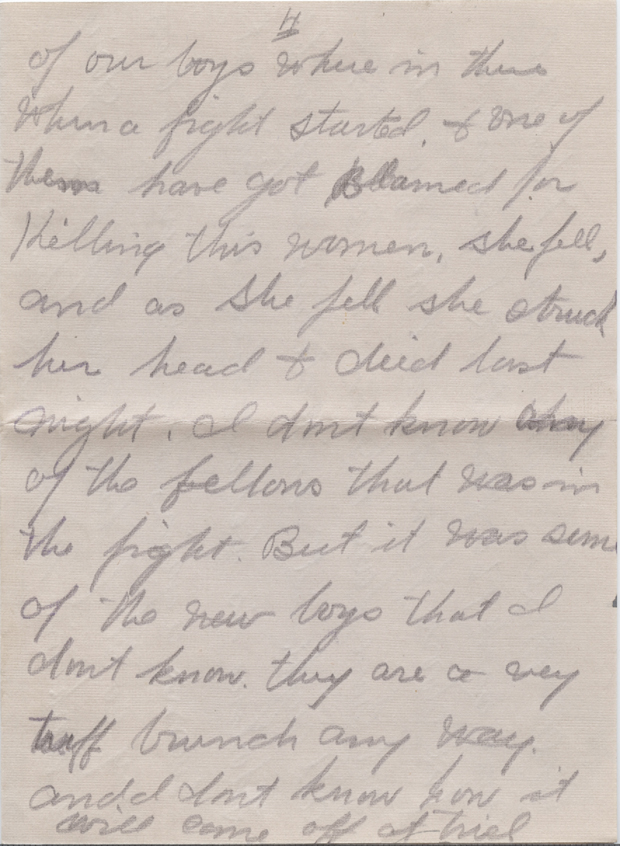 4
of our boys where in there
when a fight started, & one of
them have got Blamed for
Killing this women, she fell,
and as she fell she struck
her head & died last
night. I dont know any
of the fellows that was in
the fight. But it was some
of the new boys that I
dont know. they are a very
tuff bunch any way.
and I dont know how it
will come off at triel